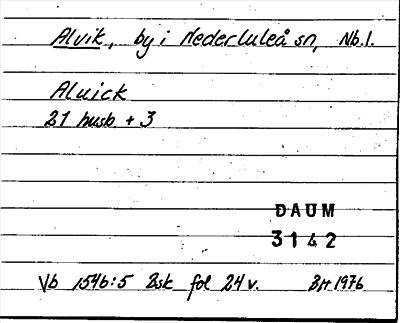 Alvik, by i Nederluleå sn, Nb.l.
Aluick
21 husb. + 3
DAUM
3142
Vb 1546:5 Bsk fol 24 v. BH 1976